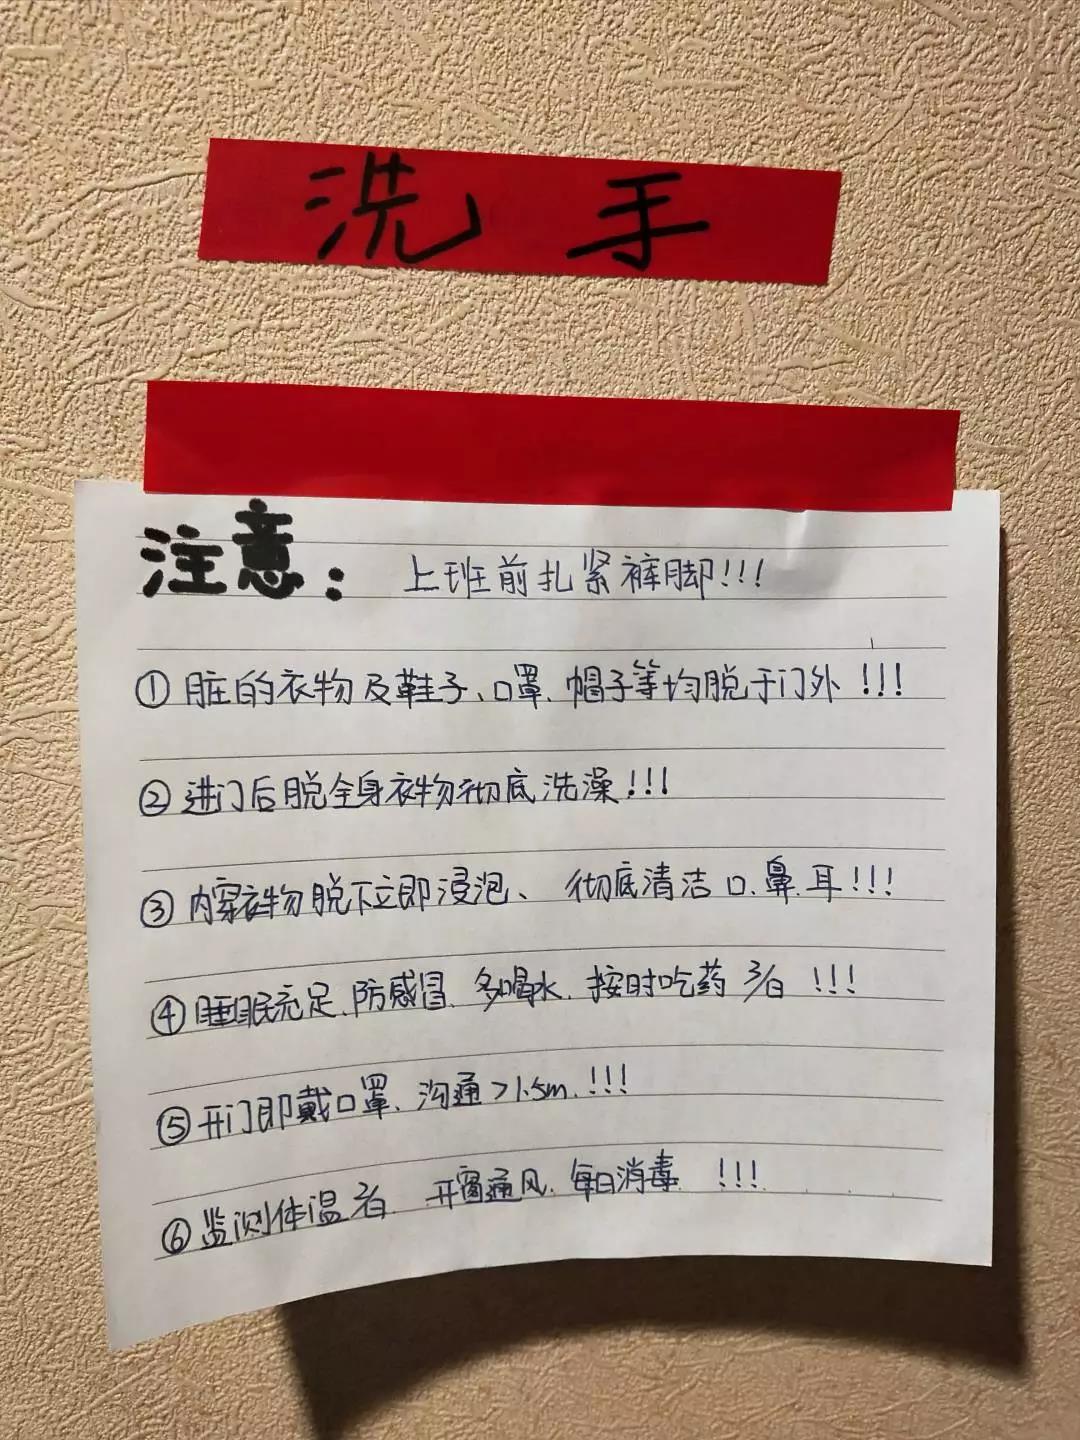 洗手
注意： 上班前扎紧裤脚!!!
①脏的衣物及鞋子、口罩、帽子等均脱于门外!!!
②进门后脱全身衣物彻底洗澡!!!
③内穿衣物脱下立即浸泡、彻底清洁口、鼻、耳!!!
④睡眠充足、防感冒、多喝水、按时吃药 3/日 !!!
⑤开门即戴口罩、沟通>1.5m.!!!
⑥监测体温 2/日、开窗通风、每日消毒 !!!